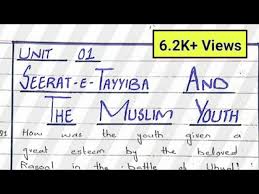 6.2K+ Views
UNIT 01
SEERAT-E-TAYYIBA AND
THE MUSLIM YOUTH
Q1 How was the youth given a
great esteem by the beloved
Rasool in the battle of Uhud?